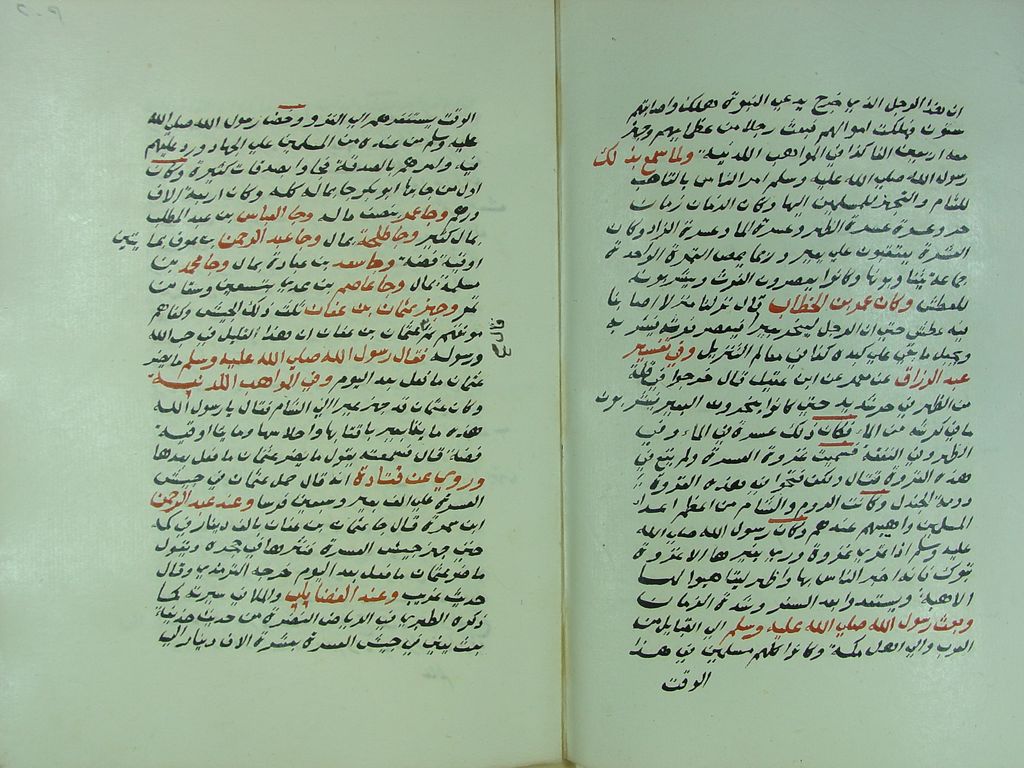 ان هذا الرجل الذي خرج يدعي النبوة هلك واصابتهم
سنون فهلكت اموالهم فبعث رجلا من عظمايهم وجهز
معه اربعين الفا كذا في المواهب اللدنية ولما سمع بذلك
رسول الله صلي الله عليه وسلم امر الناس بالتاهب
للشام والتجهز للمسلمين اليها وكان الزمان زمان
حر وعسرة عسرة الظهر وعسرة الما وعسرة الزاد وكان
العشرة يعتقبون علي بعير وربما يمص التمرة الواحدة
جماعة يتناوبونها وكانوا يعصرون الفرث ويشربونه
للعطش وكان عمر بن الخطاب قال نزلنا منزلا اصابنا
فيه عطش حتي ان الرجل لينحر بعيره فيعصر فرثه فيشربه
ويجعل ما بقي علي كبده كذا في معالم التنزيل وفي تفسير
عبد الرزاق عن معمر عن ابن عقيل قال خرجوا في قلة
من الظهر في حر شديد حتي كانوا ينحرون البعير فيشربون
ما في كرشه من الماء فكان ذلك عسرة في الماء وفي
الظهر وفي النفقة فسميت غزوة العسرة ولم يقع في
هذه الغزوة قتال ولكن فتحوا في هذه الغزوة
دومة الجندل وكانت الروم والشام من اعظم اعداء
المسلمين واهيبهم عندهم وكان رسول الله صلي الله
عليه وسلم اذا غزي غزوة وري بغيرها الا غزوة
تبوك فانه اخبر الناس بها واظهر ليتاهبوا لها
الاهبة ويستعدوا بعد السفر وشدة الزمان
وبعث رسول الله صلي الله عليه وسلم الي القبايل من
العرب والي اهل مكة وكانوا كلهم مسلمين في هذا
الوقت
الوقت يستنفرهم الي الغزو وحض رسول الله صلي الله
عليه وسلم من عنده من المسلمين علي الجهاد ورد عليهم
فيه وامرهم بالصدقة فجاوا بصدقات كثيرة وكان
اول من جا بها ابو بكر جا بماله كله وكان اربعة الاف
درهم وجا عمر بنصف ماله وجا العباس بن عبد المطلب
بمال كثير وجا طلحة بمال وجا عبد الرحمن بن عوف بمايتين
اوقية فضة وجا سعد بن عبادة بمال وجا محمد بن
مسلمة بمال وجا عاصم بن عدي بتسعين وسقا من
تمر وجهز عثمان بن عفان ثلث ذلك الجيش وكفاهم
موءنتهم عثمان بن عفان ان هذا القليل في حب الله
قال
ورسوله فقال رسول الله صلي الله عليه وسلم ما يضر
عثمان ما فعل بعد اليوم وفي المواهب اللدنية
وكان عثمان قد جهز عيرا الي الشام فقال يا رسول الله
هذه مايتا بعير باقتابها واحلاسها ومايتا اوقية
فضة قال فسمعته يقول ما يضر عثمان ما فعل بعدها
وروي عن قتادة انه قال حمل عثمان في جيش
العسرة علي الف بعير وسبعين فرسا وعند عبد الرحمن
ابن سمرة قال جا عثمان بن عفان بالف دينار في كمه
حين جهز جيش العسرة فنثرها في حجره ويقول
ما ضر عثمان ما فعل بعد اليوم خرجه الترمذي وقال
حديث غريب وعند الفضايلي والملا في سيرته كما
ذكره الطبري في الرياض النضرة من حديث حذيفة
بعث يعني في جيش العسرة بعشرة الاف دينار الي